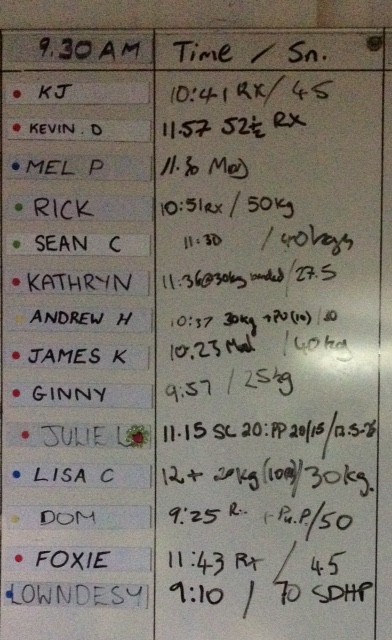 9.30 AM Time / Sn.
KJ 10:41 RX / 45
KEVIN . D 11.57 52½ RX
MEL P 11.30 Mod
RICK 10:51 RX / 50kg
SEAN C 11:30 / 40kgs
KATHRYN 11:36@30kg banded / 27.5
ANDREW H 10:37 30kg +PU(10) /
JAMES K 10.23 Mod / 40kg
GINNY 9:57 / 25kg
JULIE L 11.15 SC 20:PP 20/15 /
LISA C 12+ 20kg / 30kg.
DOM 9:25 + Pu.P. / 50
FOXIE 11:43 Rx / 45
LOWNDESY 9:10 / 70 SDHP